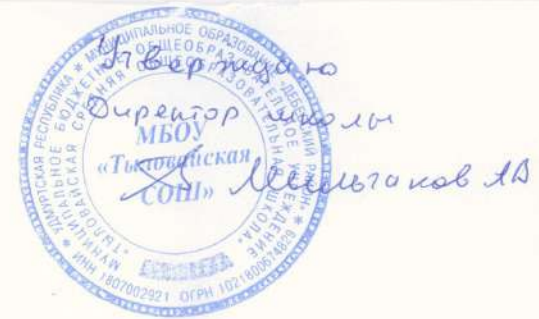 Утверждаю
Директор школы
Мильчаков АВ
УДМУРТСКАЯ РЕСПУБЛИКА * МУНИЦИПАЛЬНОЕ ОБРАЗОВАНИЕ «ДЕБЕССКИЙ РАЙОН» *
МУНИЦИПАЛЬНОЕ БЮДЖЕТНОЕ ОБЩЕОБРАЗОВАТЕЛЬНОЕ УЧРЕЖДЕНИЕ
«ТЫЛОВАЙСКАЯ СРЕДНЯЯ ОБЩЕОБРАЗОВАТЕЛЬНАЯ ШКОЛА»
ИНН 1807002921 ОГРН 1021800674829
МБОУ
«Тыловайская
СОШ»